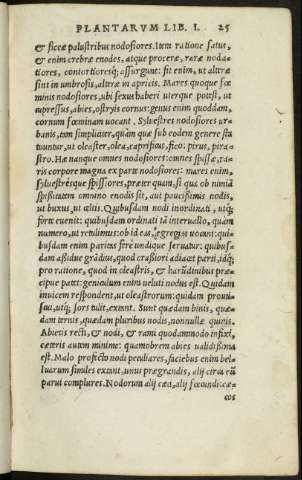 PLANTARVM LIB. I. 25
& siccæ palustribus nodosiores. Item ratione satus,
& enim crebræ enodes, atque proceræ, raræ noda-
tiores, contortioresq́; assurgunt: fit enim, ut altræ
sint in umbrosis, altræ in apricis. Mares quoque fœ
minis nodosiores, ubi sexus haberi uterque potest, ut
cupressus, abies, ostryis cornus: genus enim quoddam,
cornum fœminam uocant. Syluestres nodosiores ur-
banis, tam simpliciter, quàm quæ sub eodem genere sta
tuuntur, ut oleaster, olea, caprificus, fico: pirus, pira-
stro. Hæ nanque omnes nodosiores: omnes spissæ, ra-
ris corpore magna ex parte nodosiores: mares enim,
syluestresque spissiores, præterquam, si qua ob nimiā
spissitatem omnino enodis sit, aut paucissimis nodis,
ut buxus ut altis. Quibusdam nodi inordinati, utq́;
forte euenit: quibusdam ordinati tā interuallo, quam
numero, ut retulimus: ob id eas, segregis uocant: qui-
busdam enim pariens ferè undique seruatur: quibus-
dam assidue gradius, quod crassiori adiacet parti, idq́;
pro ratione, quod in oleastris, et harūdinibus præ-
cipue patet: geniculum enim ueluti nodus est. Quidam
inuicem respondent, ut oleastrorum: quidam proui-
sus, utiq́; fors tulit, exeunt. Sunt quædam binis, quæ-
dam ternis, quædam pluribus nodis, nonnullæ quinis.
Abietis recti, & nodi, & rami quodammodo infixi,
cæteris autem minime: quamobrem abies ualidißima
est. Malo profecto nodi peculiares, faciebus enim bel-
luarum similes extant, unus prægrandis, alij circa eū
parui complures. Nodorum alij cæci, alij fœcundi: cæ-
cos